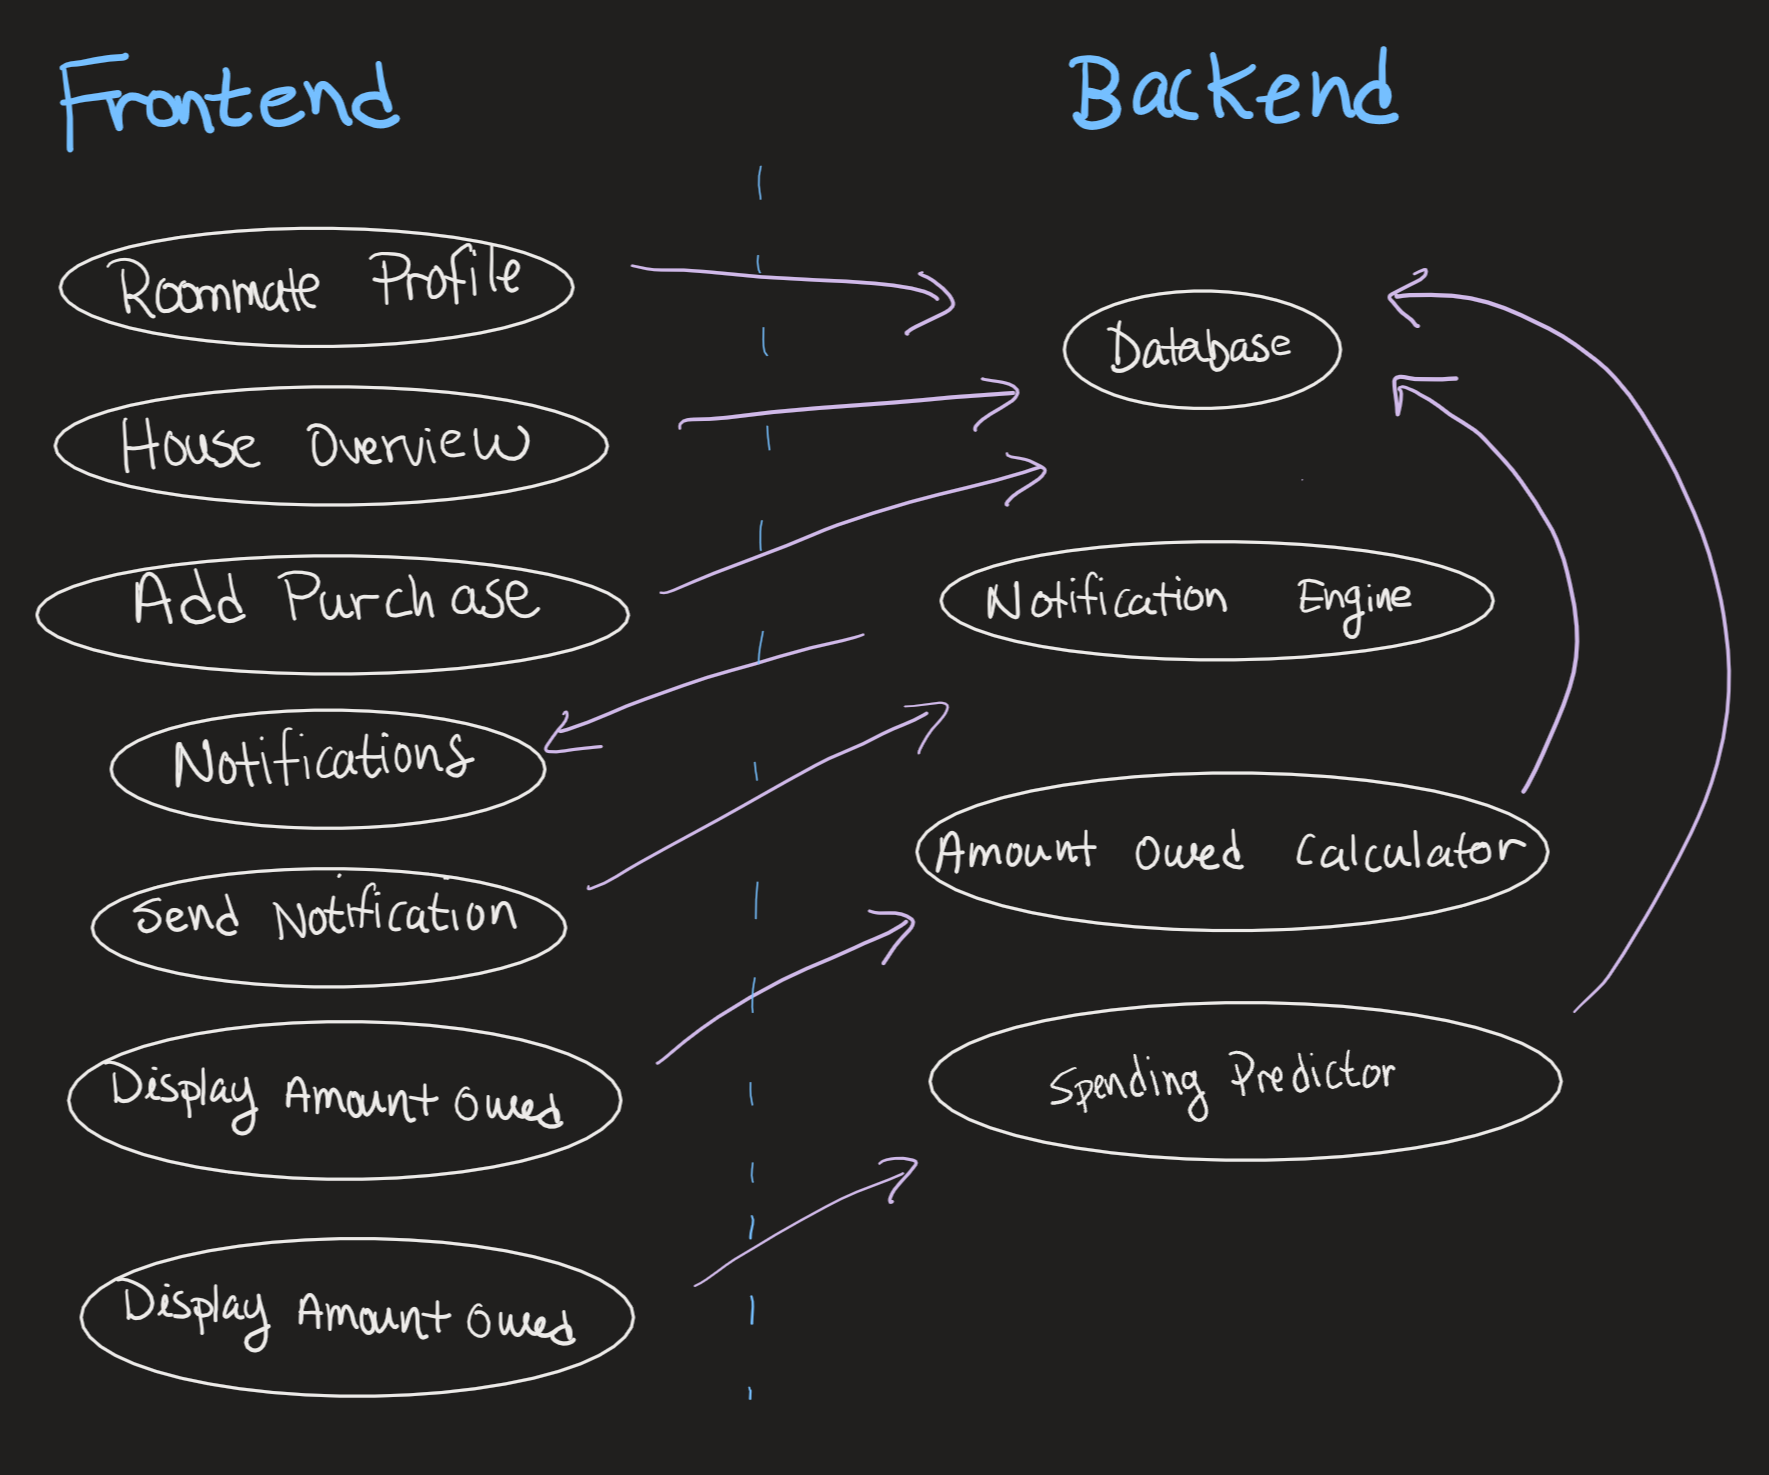 Frontend
Backend
Roommate Profile
House Overview
Add Purchase
Notifications
Send Notification
Display Amount Owed
Display Amount Owed
Database
Notification Engine
Amount Owed Calculator
Spending Predictor